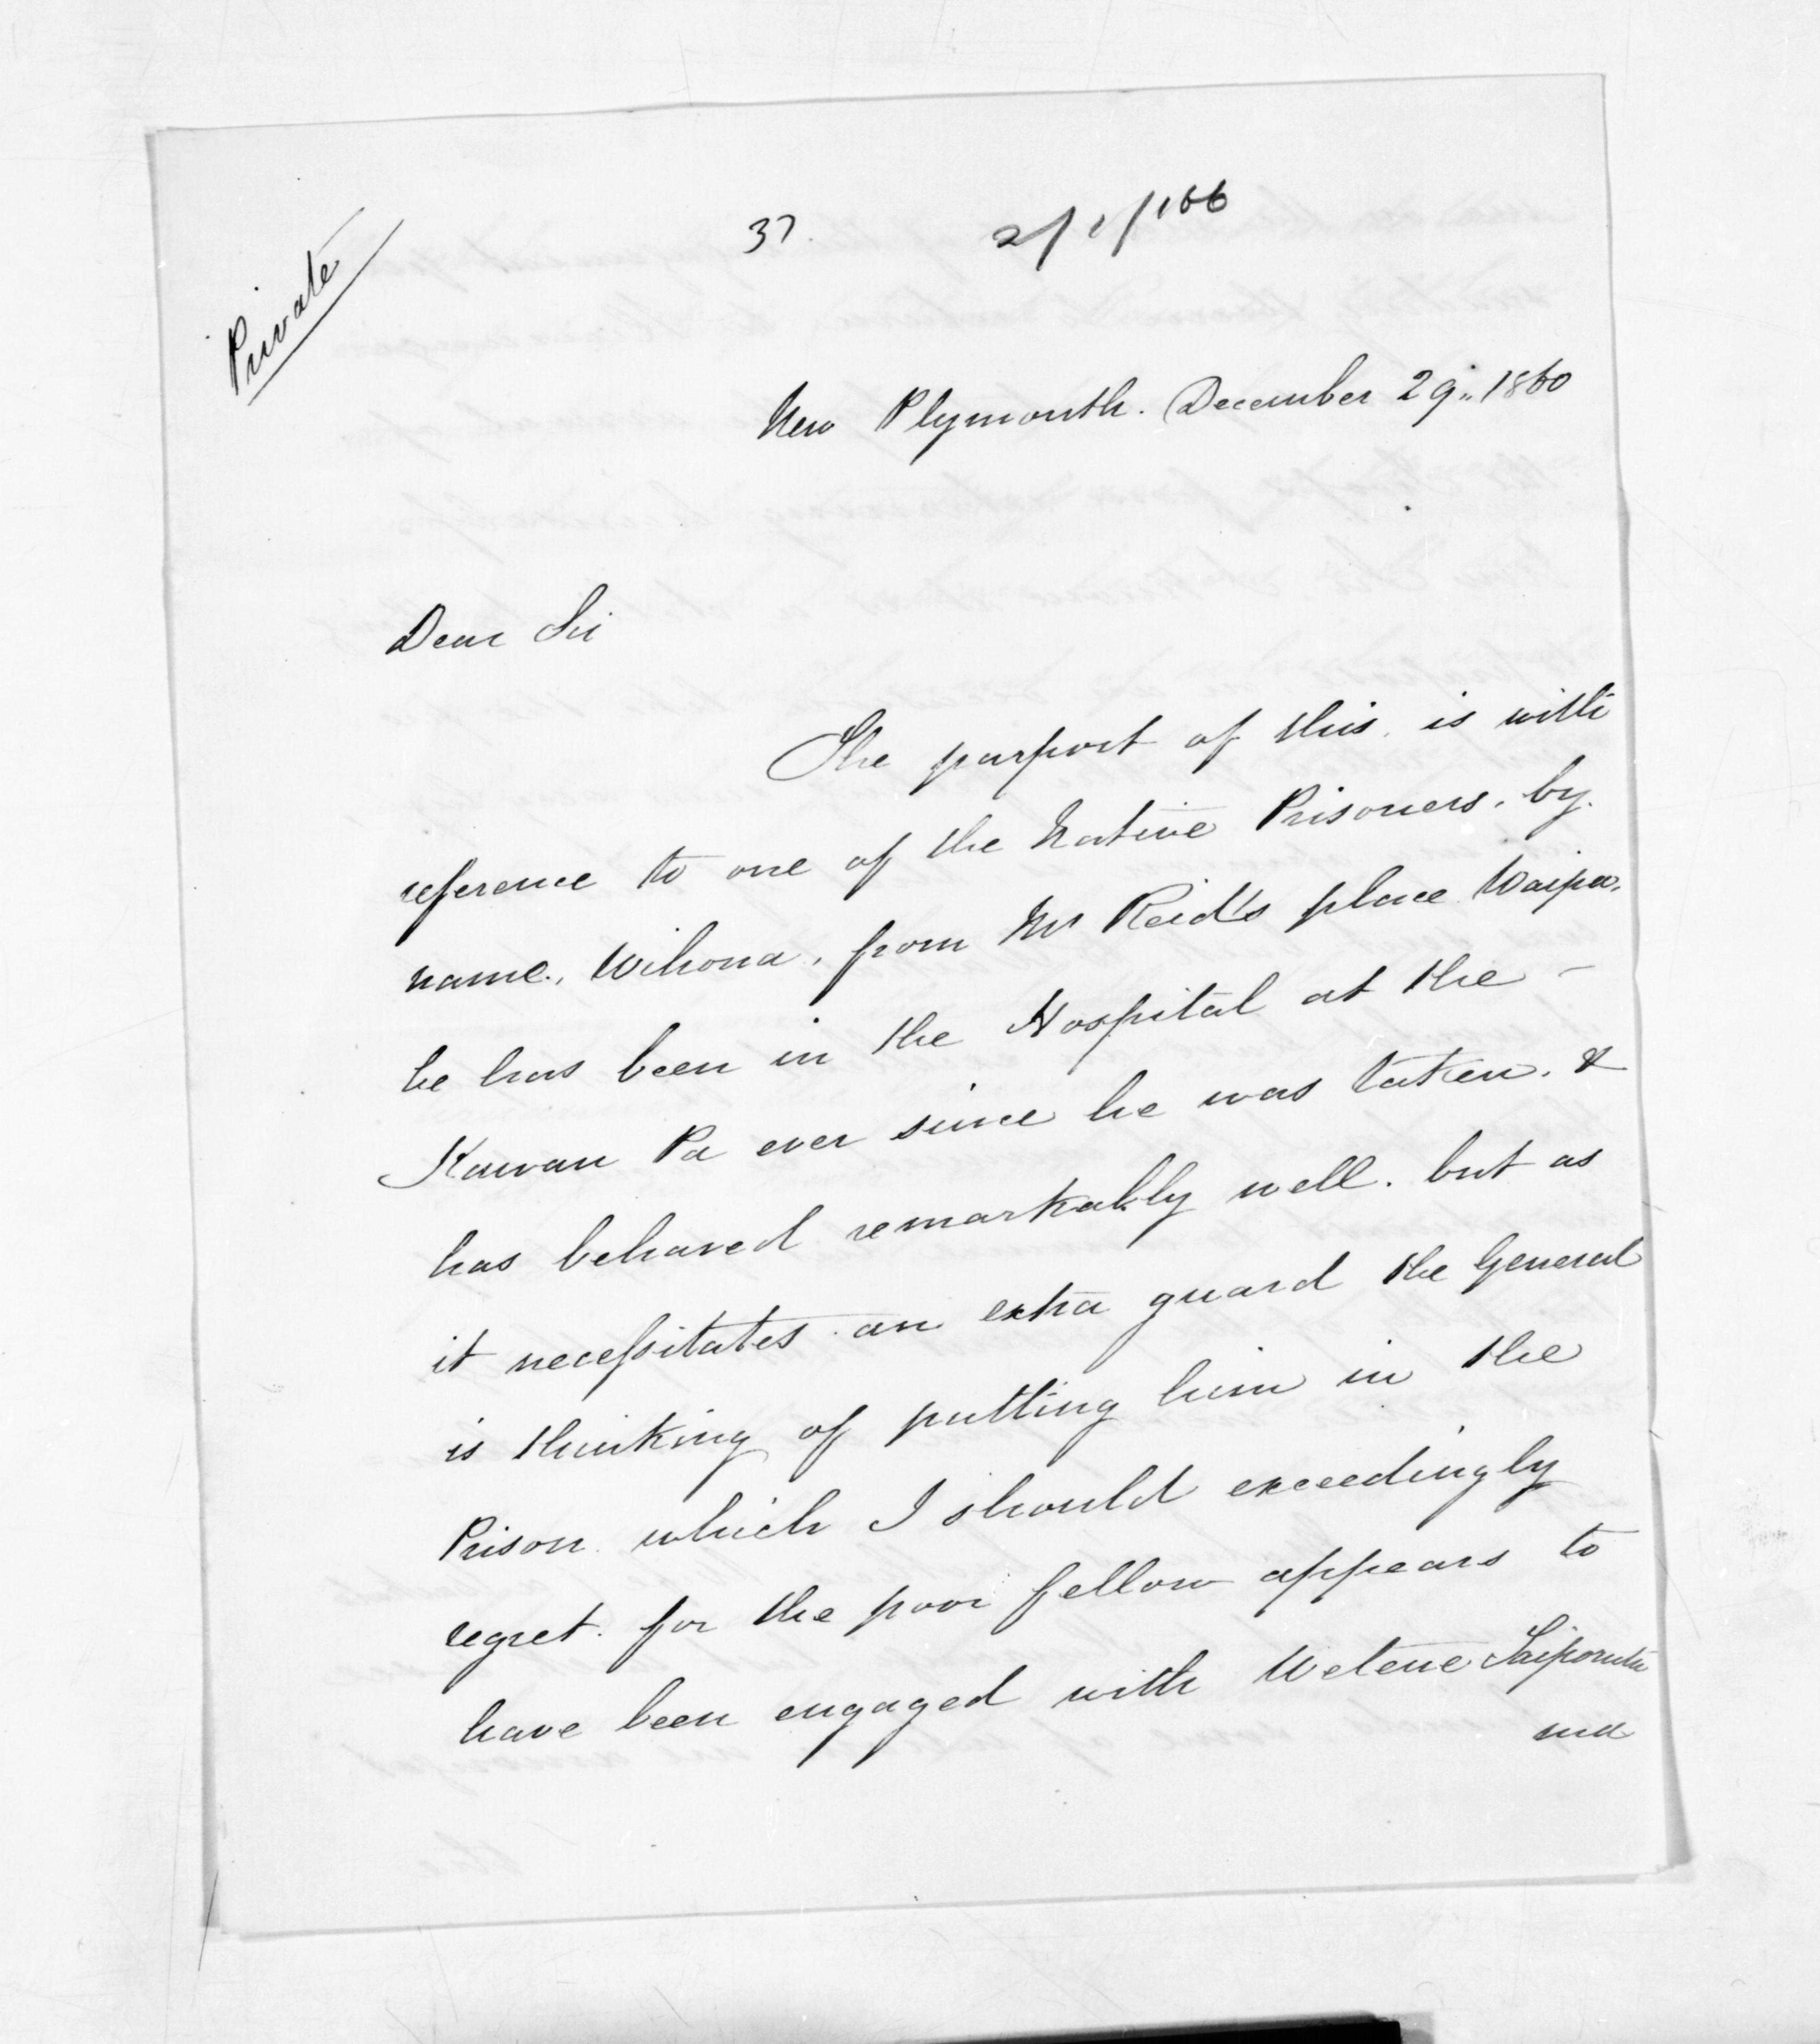 Private
37.
New Plymouth. December 29,, 1860
Dear Sir
The purport of this, is with
reference to one of the Native Prisoners, by
name, Wihona, from Mr Reid's place Waipa,
he has been in the Hospital at the -
Kawau Pa ever since he was taken. &
has behaved remarkably well. but as
it necessitates an extra guard the General
is thinking of putting him in the
Prison which I should exceedingly
regret. for the poor fellow appears to
have been engaged with Wetene Taiporutu